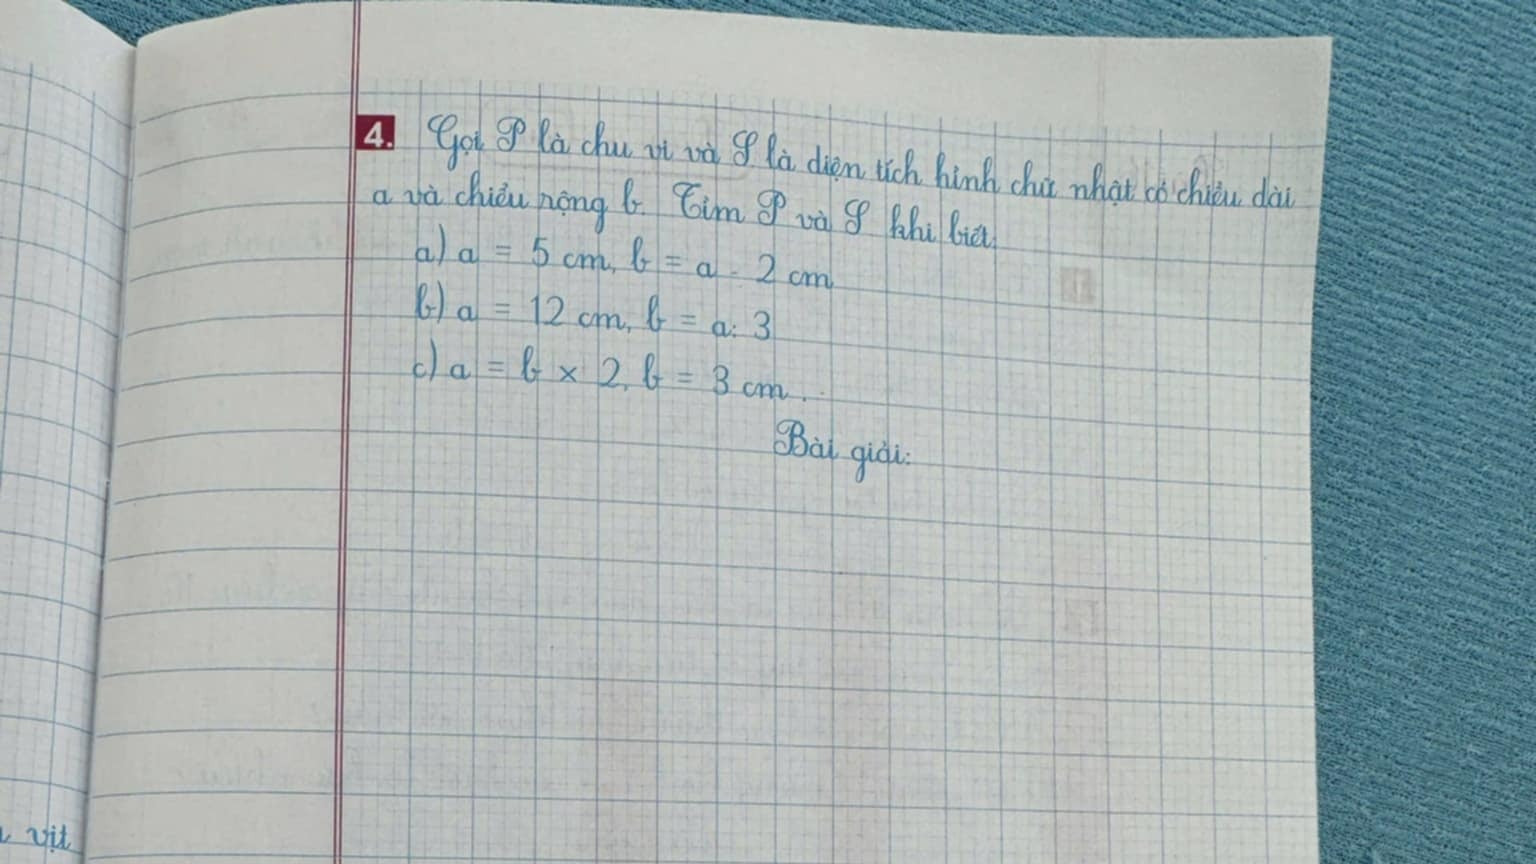 4. Gọi P là chu vi và S là diện tích hình chữ nhật có chiều dài
a và chiều rộng b. Tìm P và S khi biết:
a) a = 5 cm, b = a - 2 cm
b) a = 12 cm, b = a : 3
c) a = b × 2, b = 3 cm.
Bài giải:
vịt